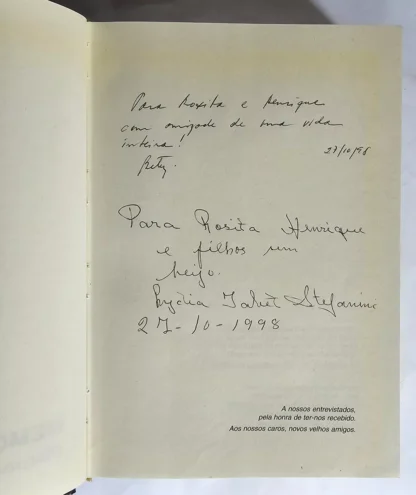 Para Rosita e Henrique
com amizade de uma vida
inteira!
27/10/98
Bety.
Para Rosita Henrique
e filhos um
beijo.
Lydia Jabet Stefanine
27-10-1998
A nossos entrevistados,
pela honra de ter-nos recebido.
Aos nossos caros, novos velhos amigos.